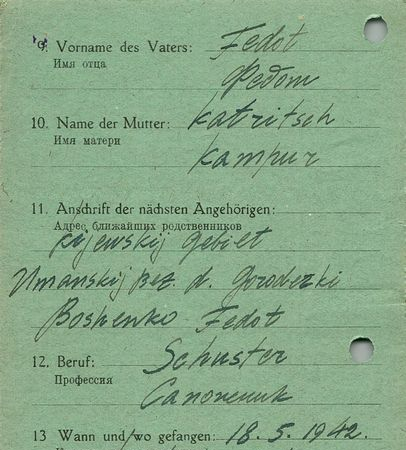 9. Vorname des Vaters: Fedot
Имя отца Федот
10. Name der Mutter: Katritsch
Имя матери Катрич
11. Anschrift der nächsten Angehörigen:
Адрес ближайших родственников
Kijewskij Gebiet
Umanskij Bez. d. Gorodezki
Boshenko Fedot
12. Beruf: Schuster
Профессия Сапожник
13 Wann und/wo gefangen: 18.5.1942.